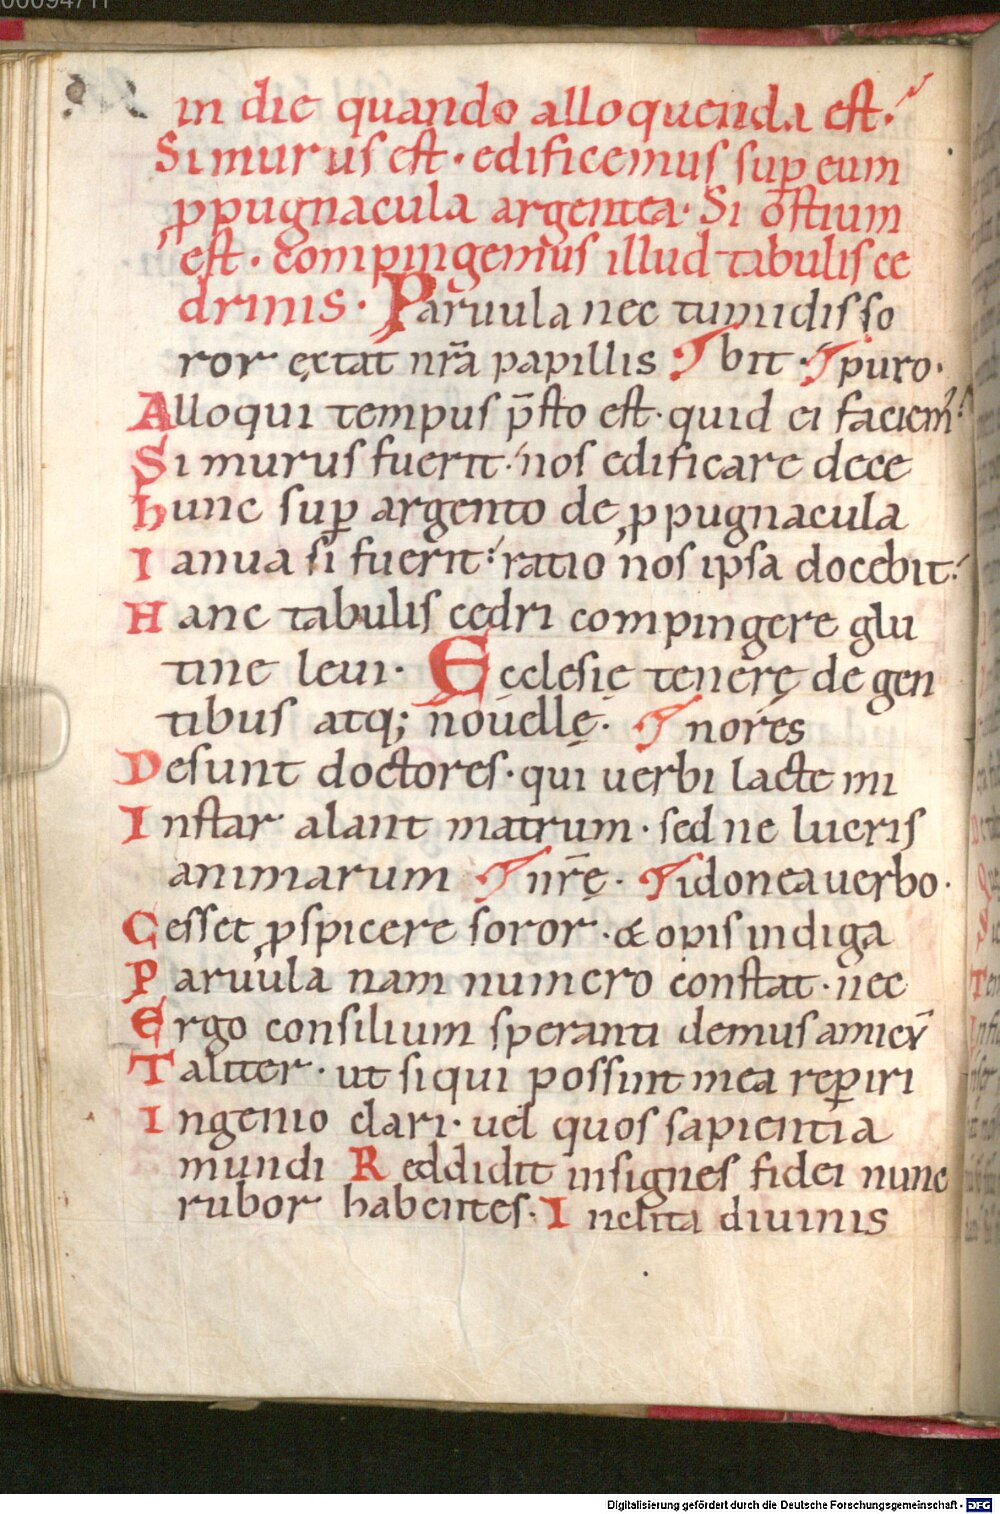 00094711
in die quando alloquenda est.
Si murus est · edificemus sup̄ eum
ꝓpugnacula argentea · Si ostium
est · compingemus illud tabulis ce
drinis · Paruula nec tumidis so
ror extat nr̄a papillis bit · puro ·
Alloqui tempus p̄sto est · quid ei faciem᷒?
Si murus fuerit · nos edificare dece
hunc sup̄ argento de ꝓpugnacula
Ianua si fuerit: ratio nos ipsa docebit:
Hanc tabulis cedri compingere glu
tine leui · Ecclesie tenere de gen
tibus atq; nouellę · nores
Desunt doctores · qui uerbi lacte mi
Instar alant matrum · sed ne lucris
animarum nr̄ę · idonea uerbo ·
Cesset ꝑspicere soror · & opis indiga
Paruula nam numero constat · nec
Ergo consilium speranti demus amicꝝ
Taliter · ut si qui possunt mea reꝑiri
Ingenio clari · uel quos sapientia
mundi Reddidit insignes fidei nunc
rubor habentes · Inclita diuinis
Digitalisierung gefördert durch die Deutsche Forschungsgemeinschaft - DFG